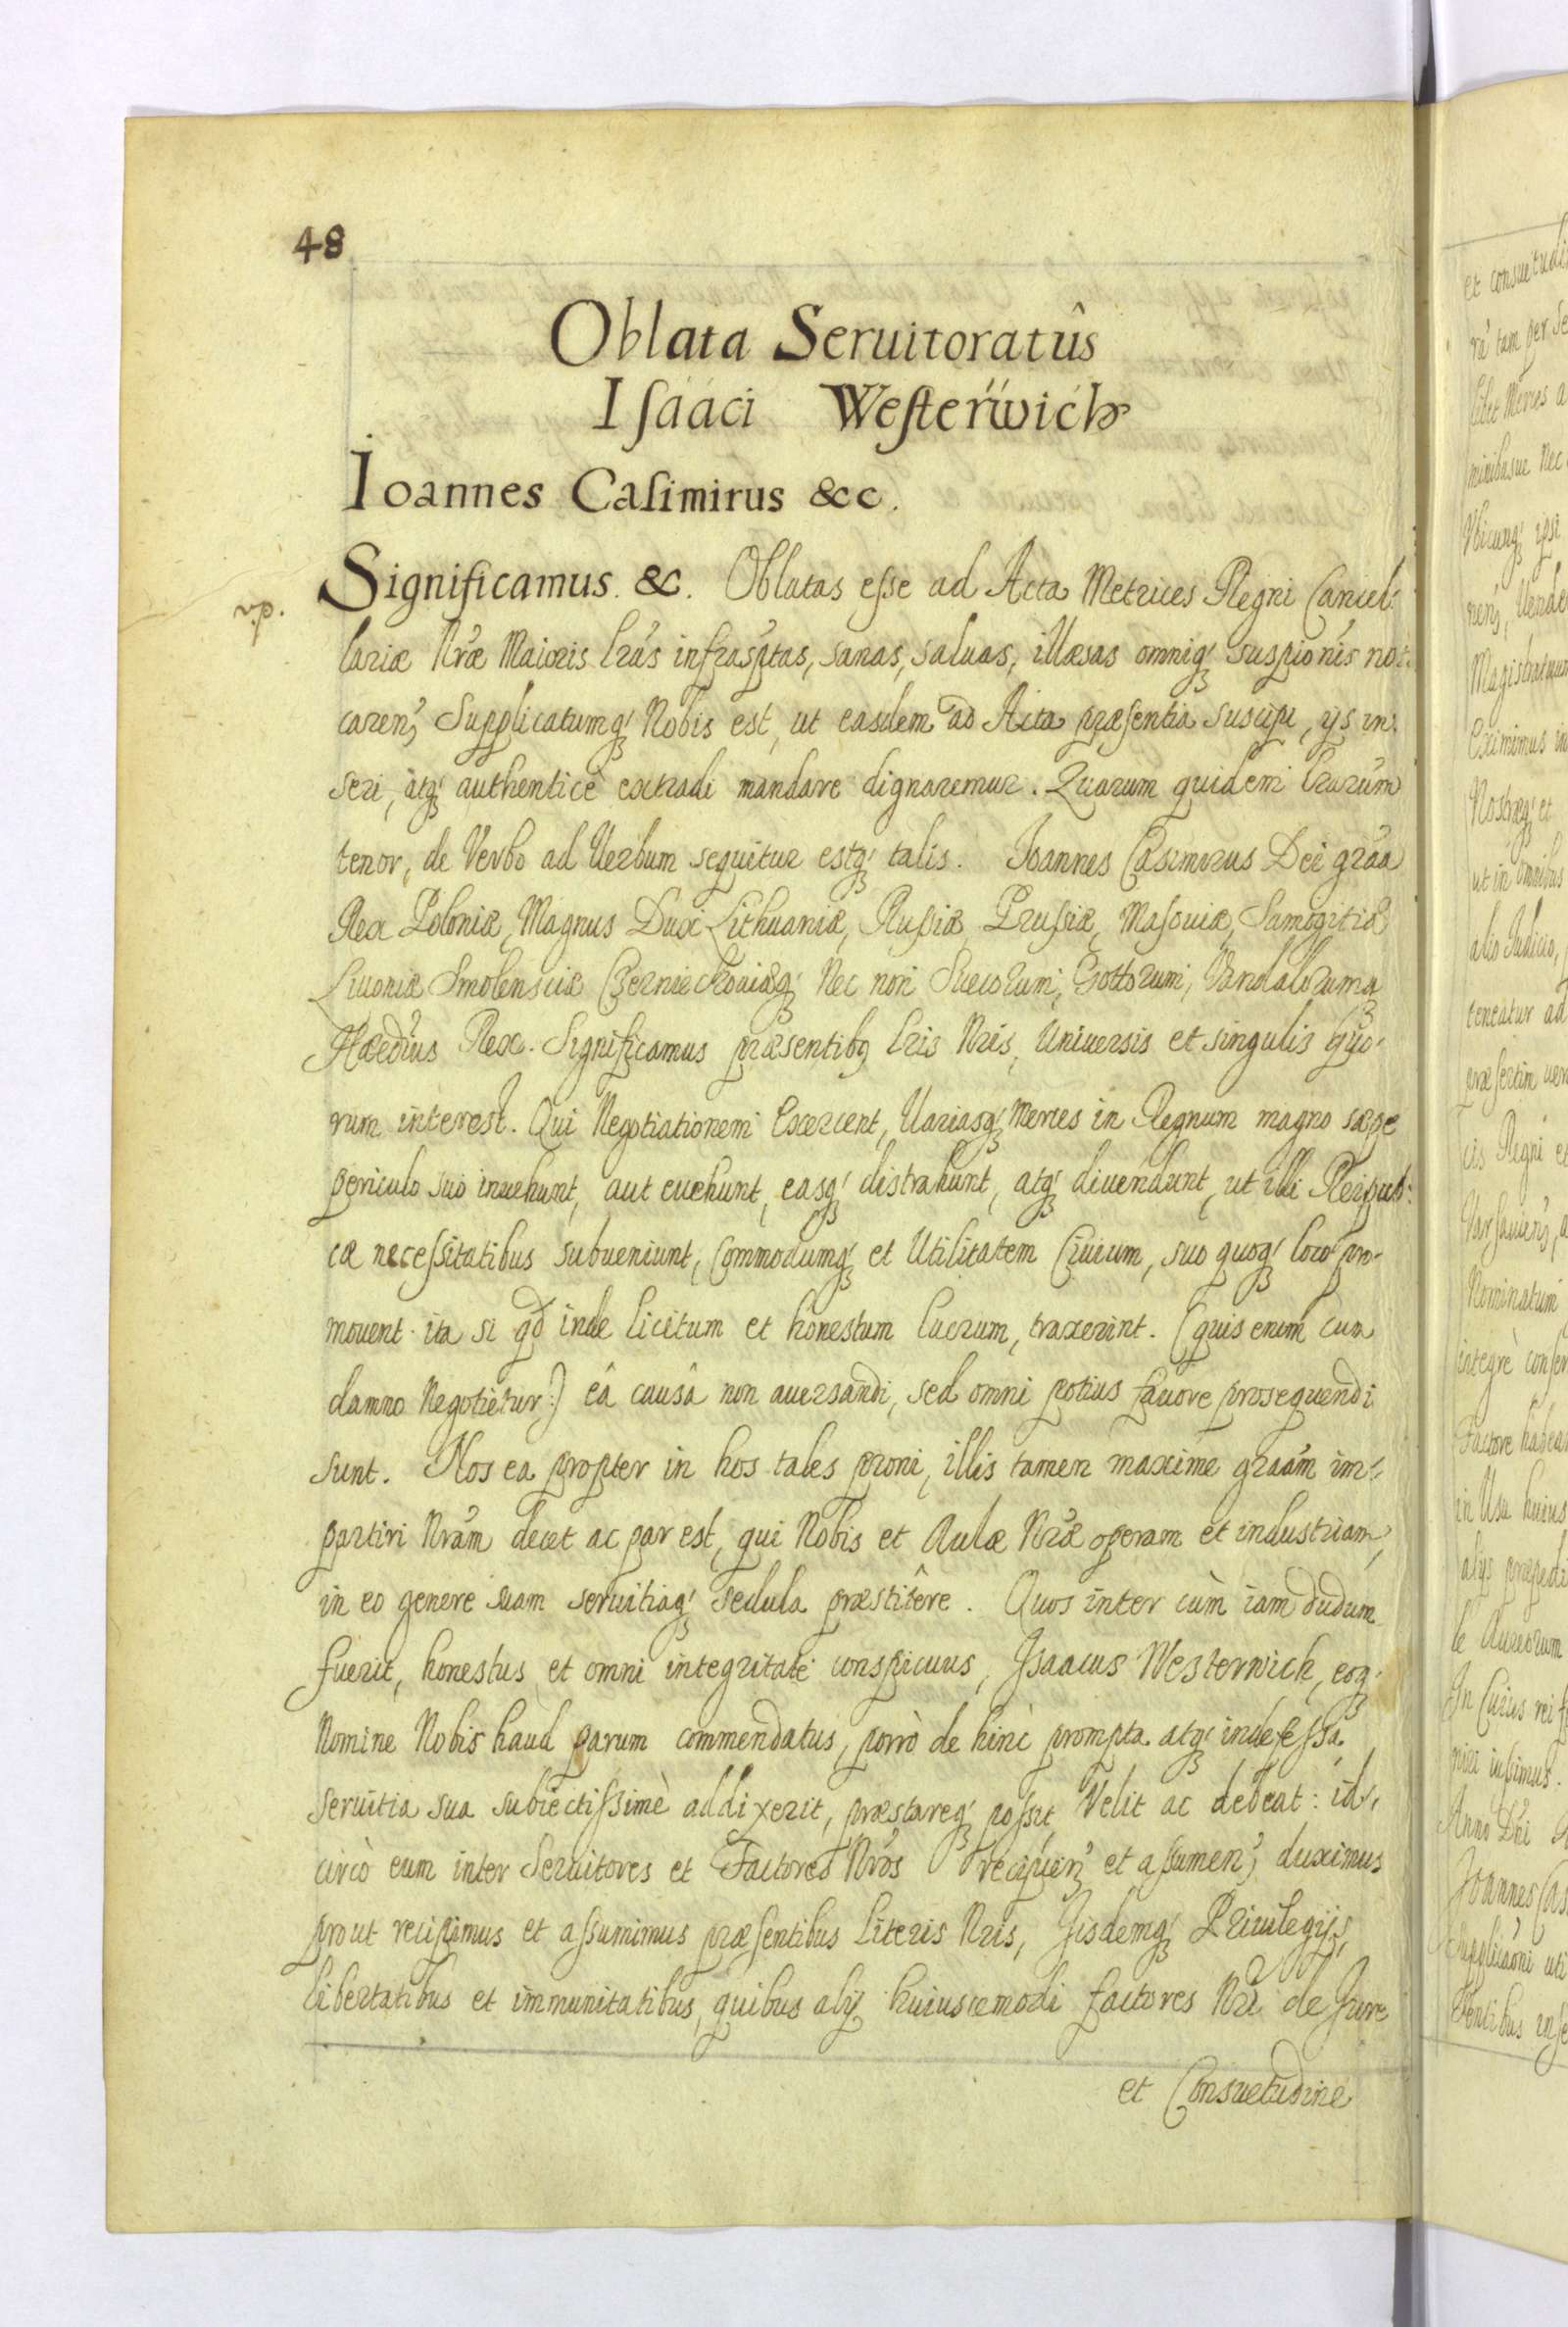 48
Oblata Seruitoratûs
Isááci Westerẅich
Ioannes Casimirus &cc.
Significamus. &c. Oblatas esse ad Acta Metrices Regni Cancel:
vp.
lariæ Nræ Maioris lras infrasptas, sanas, saluas, illæsas omniq; suspionis not:
caren, Supplicatumq; Nobis est, ut easdem ad Acta præsentia suscipi, ijs in
seri, atq; authenticè extradi mandare dignaremur. Quarum quidem lrarum
tenor, de Verbo ad Uerbum sequitur estq; talis. Joannes Casimirus Dei graa
Rex Poloniæ, Magnus Dux Lithuaniæ, Russiæ Prussiæ, Masouiæ, Samogitiæ
Liuoniæ Smolensciæ Czerniechouiæq; Nec non Suecorum, Gottorum, Vandalorumq
Hæredius Rex. Significamus præsentibq lris Nris, Uniuersis et singulis quo-
rum interest. Qui Negotiationem Exercent, Uariasq; Merces in Regnum magno sæpe
periculo suo inuehunt, aut euehunt, easq; distrahunt, atq; diuendunt, ut illi Reipub:
cæ necessitatibus subueniunt, Commodumq; et Utilitatem Ciuium, suo quoq; loco pro-
mouent ita si qd inde licitum et honestum lucrum, traxerint. (quis enim cum
damno Negotietur:) eâ causâ non auersandi, sed omni potius fauore prosequendi
sunt. Nos ea propter in hos tales proni, illis tamen maxime graam im-
partiri Nram decet ac par est, qui Nobis et Aulæ Nræ operam et industriam,
in eo genere suam seruitiaq; sedula præstitêre. Quos inter cùm iam dudum
fuerit, honestus et omni integritate conspicuus, Isaacus Westerwich, eoq;
Nomine Nobis haud parum commendatus, porrò de hinc prompta atq; indefessa
seruitia sua subiectissimè addixerit, præstareq; possit Velit ac debeat: id-
circò eum inter Seruitores et Factores Nros recipien et assumen, duximus
prout recipimus et assumimus præsentibus literis Nris, Iisdemq; Priuilegijs,
libertatibus et immunitatibus, quibus alij huiuscemodi factores Nri de Jure
et Consuetudine